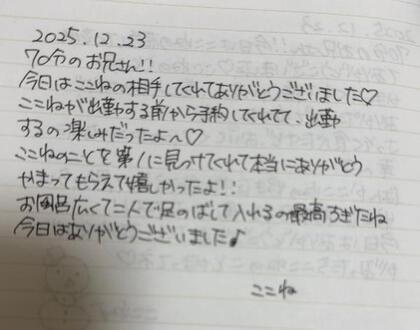 2025.12.23
70分のお兄さん!!
今日はここねの相手してくれてありがとうございました♡
ここねが出勤する前から予約してくれてて、出勤
するの楽しみだったよ〜♡
ここねのことを第1に見つけてくれて本当にありがとう
やまってもらえて嬉しかったよ!!
お風呂広くて二人で足のばして入れるの最高すぎたね
今日はありがとうございました♪
ここね